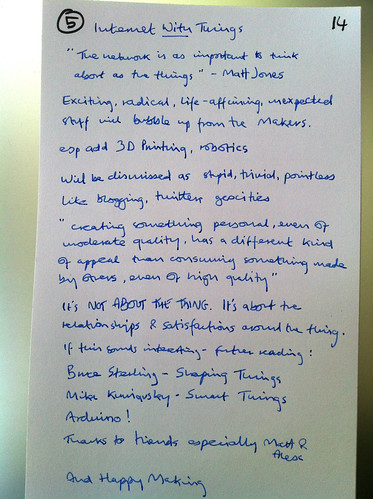 5 Internet With Things 14
"The network is as important to think
about as the things" - Matt Jones
Exciting, radical, life-affirming, unexpected
stuff will bubble up from the Makers.
esp add 3D Printing, robotics
Will be dismissed as stupid, trivial, pointless
like blogging, twitter, geocities
"creating something personal, even of
moderate quality, has a different kind
of appeal than consuming something made
by others, even of high quality"
It's NOT ABOUT THE THING. It's about the
relationships & satisfactions around the thing.
If this sounds interesting - further reading:
Bruce Sterling - Shaping Things
Mike Kuniavsky - Smart Things
Arduino!
Thanks to friends especially Matt &
Alex
And Happy Making